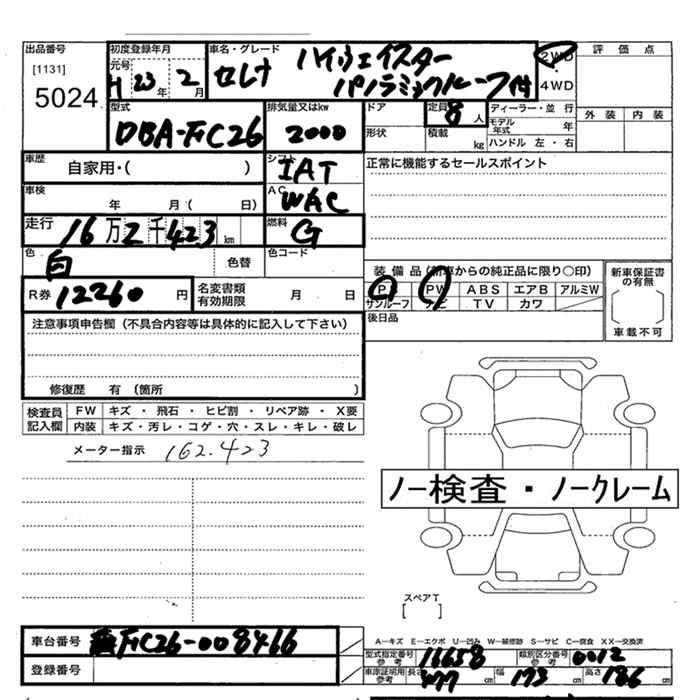 出品番号 初度登録年月 車名・グレード 評価点
[1131] 元号 セレナ ハイウェイスター 2WD
5024 H 23年 2月 パノラミックルーフ付 4WD
型式 排気量又はkw ドア 定員 ディーラー・並行 外装 内装
DBA-FC26 2000 8人 モデル年式 年
形状 積載 kg ハンドル 左・右
車歴 自家用・( ) シフト IAT 正常に機能するセールスポイント
車検 年 月( 日) AC WAC
走行 16万2千423km 燃料 G
色 白 色替 色コード
装備品(新車からの純正品に限り〇印) 新車保証書の有無
R券 12260円 名変書類有効期限 月 日 P PW ABS エアB アルミW
サンルーフ ナビ TV カワ
注意事項申告欄(不具合内容等は具体的に記入して下さい) 後日品 車載不可
修復歴 有(箇所 )
検査員記入欄 FW キズ・飛石・ヒビ割・リペア跡・X要
内装 キズ・汚レ・コゲ・穴・スレ・キレ・破レ
メーター指示 162.423
ノー検査・ノークレーム
スペアT
[ ]
A―キズ E―エクボ U―凹み W―補修跡 S―サビ C―腐食 XX―交換済
車台番号 FC26-008466 型式指定番号 参考 16658 類別区分番号 参考 0012
登録番号 車庫証明用 参考 長さ 477cm 幅 173cm 高さ 186cm